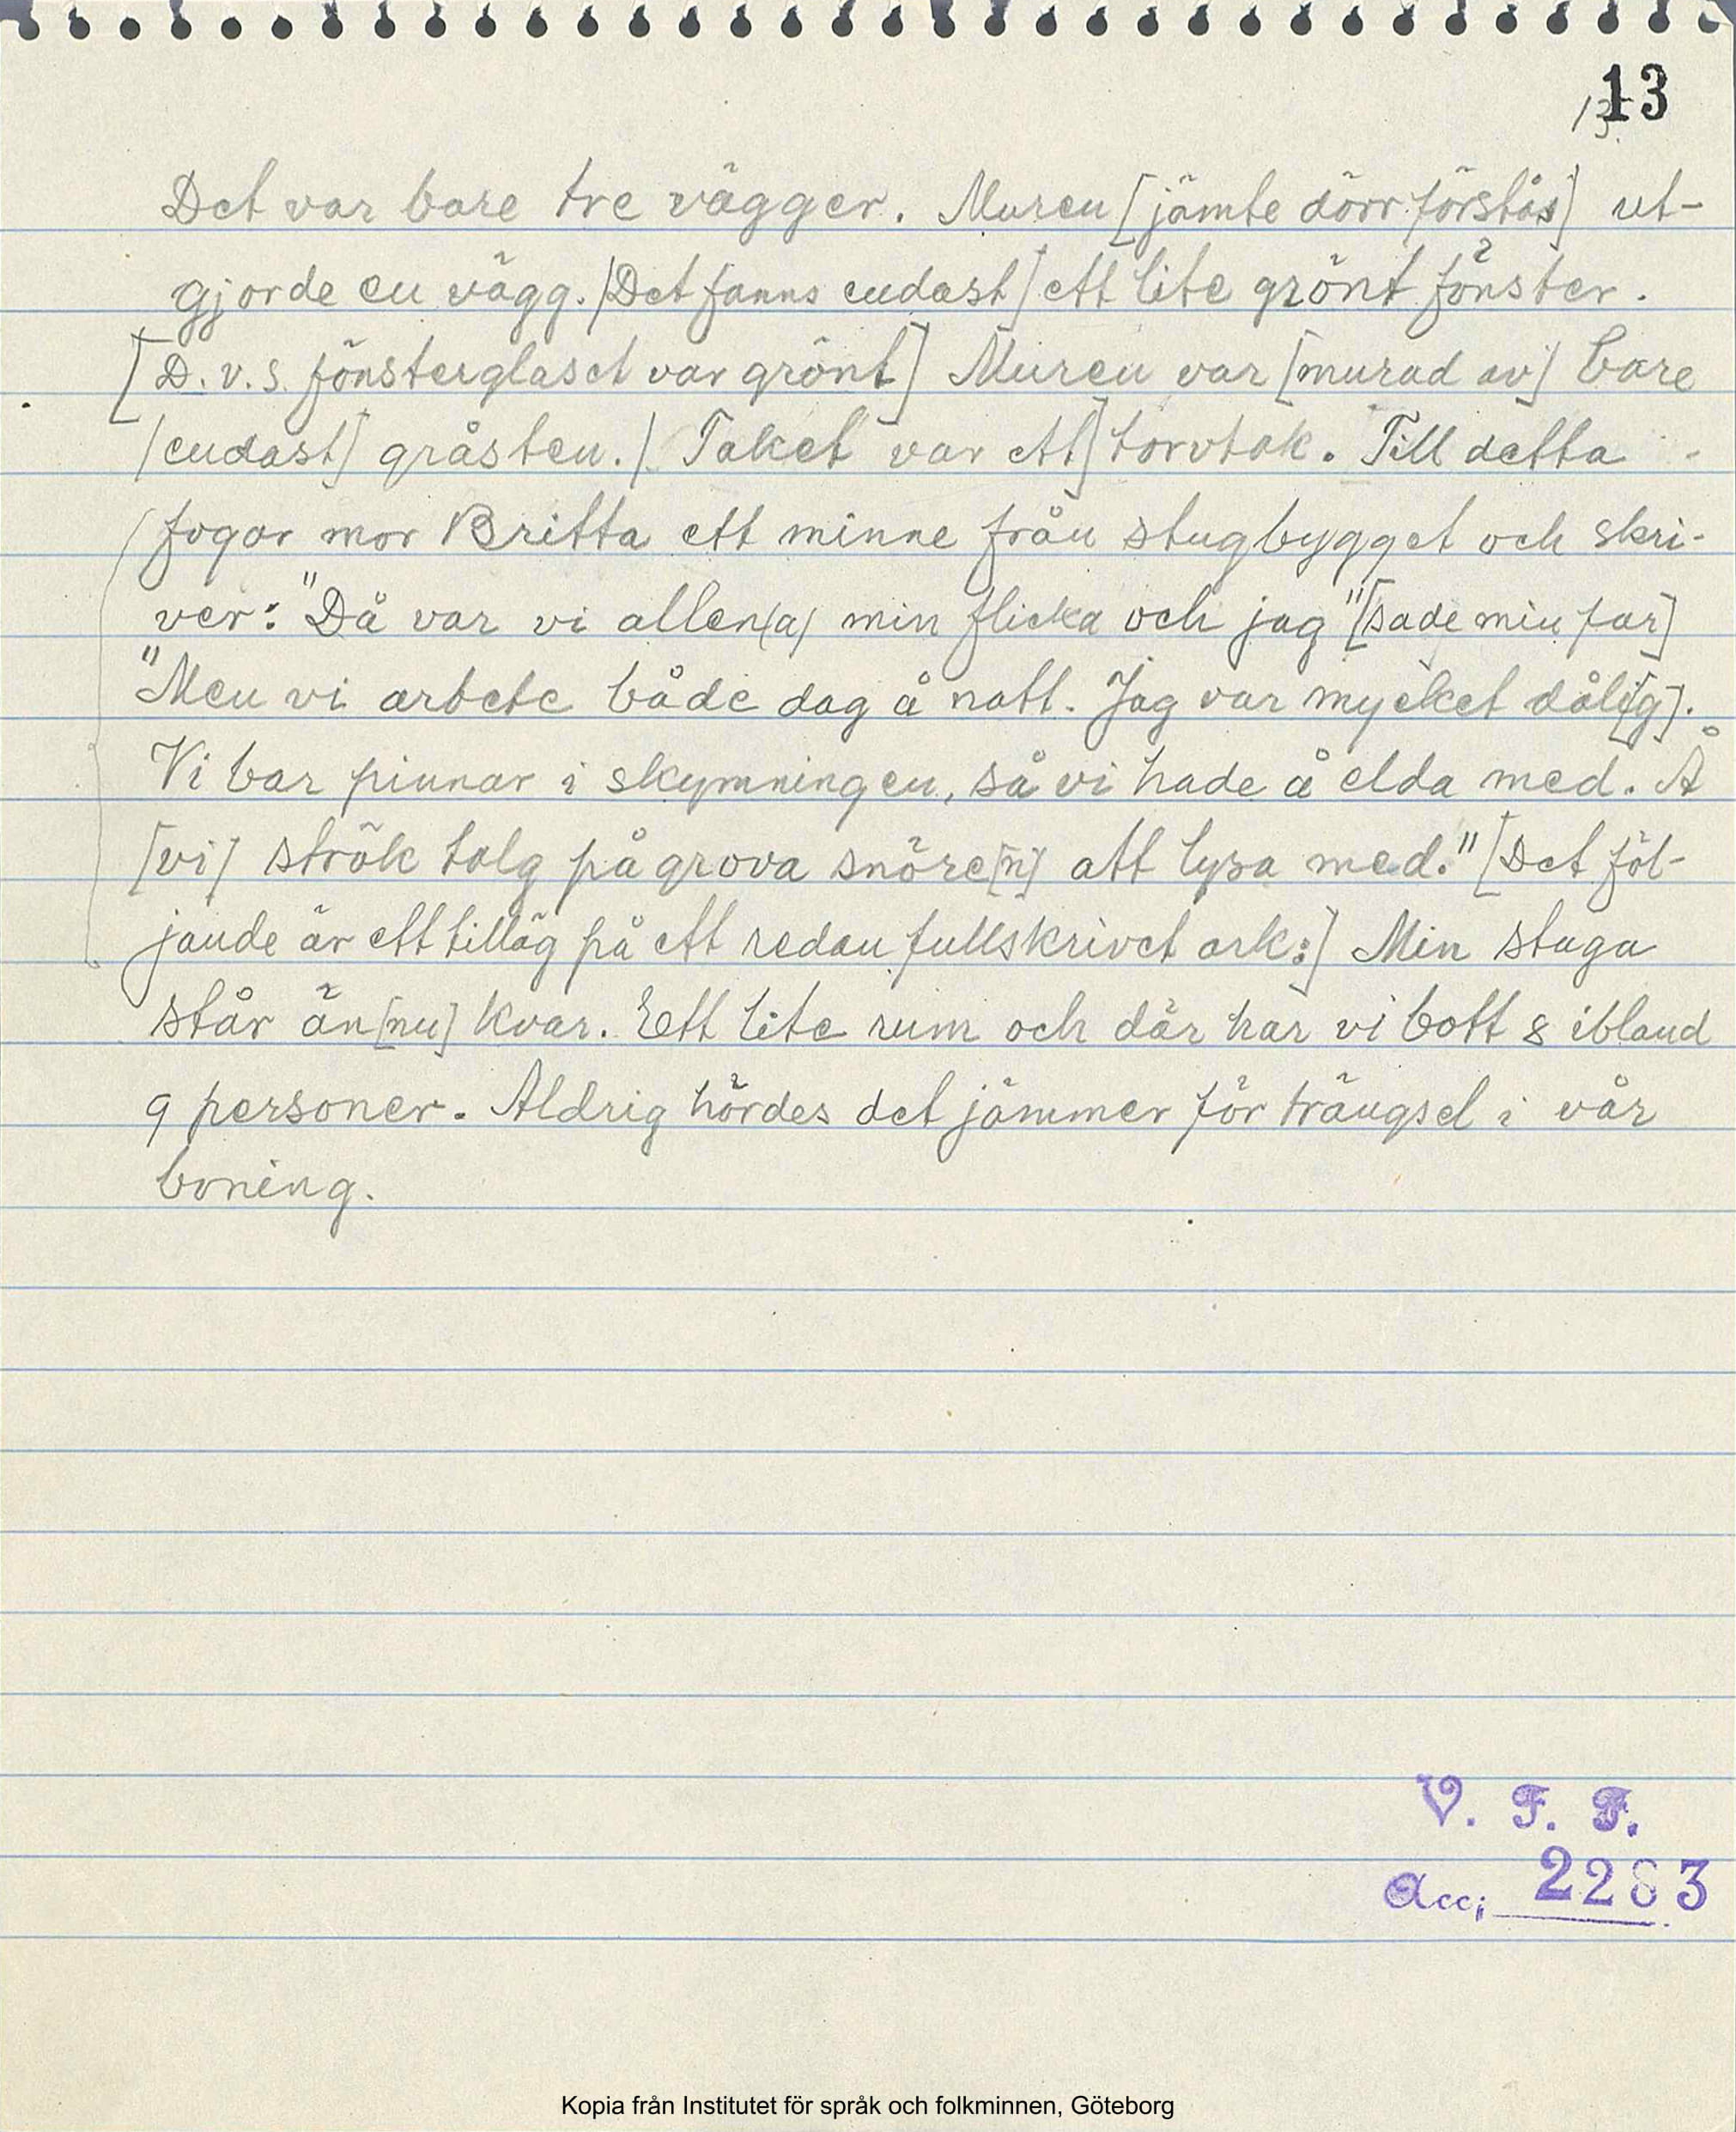 13
13.
Det var bare tre vägger. Muren [jämte dörr förstås] ut-
gjorde en vägg. [Det fanns endast] ett lite grönt fönster.
[D.v.s. fönsterglaset var grönt] Muren var [murad av] bare
[endast] gråsten. [Taket var ett] torvtak. Till detta
fogar mor Britta ett minne från stugbygget och skri-
ver: "Då var vi allen(a) min flicka och jag" [sade min far]
"Men vi arbete både dag å natt. Jag var mycket dåli[g].
Vi bar pinnar i skymningen, så vi hade å elda med. Å
[vi] strök talg på grova snöre[n] att lysa med." [Det föl-
jande är ett tilläg på ett redan fullskrivet ark:] Min stuga
står än[nu] kvar. Ett lite rum och där har vi bott 8 ibland
9 personer. Aldrig hördes det jämmer för trängsel i vår
boning.
V. F. F.
Acc; 2283
Kopia från Institutet för språk och folkminnen, Göteborg